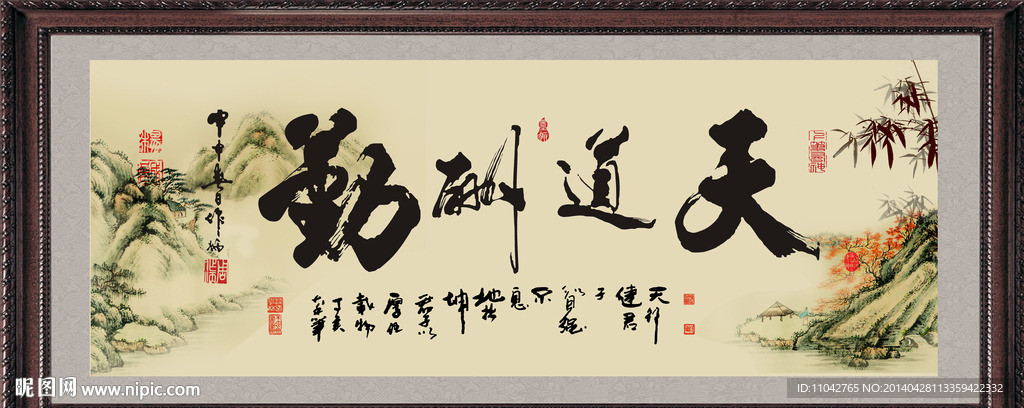 天道酬勤
天行
健君
子
以自強
不
息
地势
坤
君子以
厚德
載物
丁亥
昵图网 www.nipic.com
ID:11042765 NO:20140428113359422332